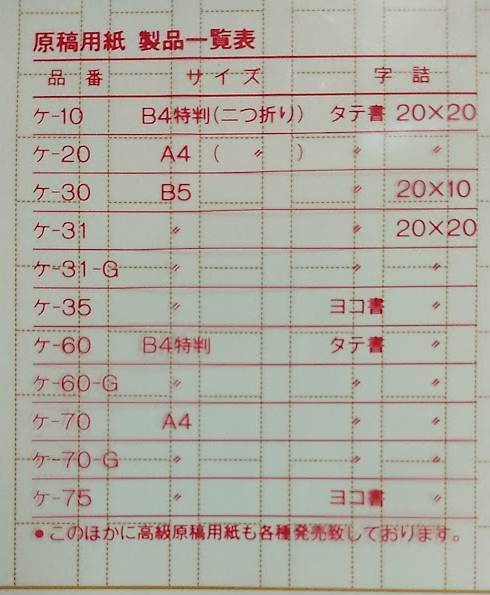 原稿用紙 製品一覧表
品番 サイズ 字詰
ケ-10 B4特判(二つ折り) タテ書 20×20
ケ-20 A4 ( 〃 ) 〃 〃
ケ-30 B5 〃 20×10
ケ-31 〃 〃 20×20
ケ-31-G 〃 〃 〃
ケ-35 〃 ヨコ書 〃
ケ-60 B4特判 タテ書 〃
ケ-60-G 〃 〃 〃
ケ-70 A4 〃 〃
ケ-70-G 〃 〃 〃
ケ-75 〃 ヨコ書 〃
●このほかに高級原稿用紙も各種発売致しております。